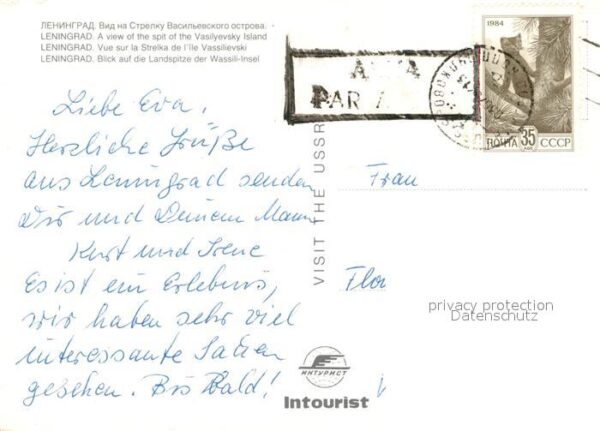 ЛЕНИНГРАД. Вид на Стрелку Васильевского острова.
LENINGRAD. A view of the spit of the Vasilyevsky Island
LENINGRAD. Vue sur la Strelka de l'île Vassilievski
LENINGRAD. Blick auf die Landspitze der Wassili-Insel
Liebe Eva,
Herzliche Grüße
aus Leningrad senden
Dir und Deinem Mann
Kurt und Irene
Es ist ein Erlebnis,
wir haben sehr viel
interessante Sachen
gesehen. Bis Bald!
VISIT THE USSR
ИНТУРИСТ
Intourist
PAR
1984
ПОЧТА 35 СССР
Frau
Flor
privacy protection
Datenschutz